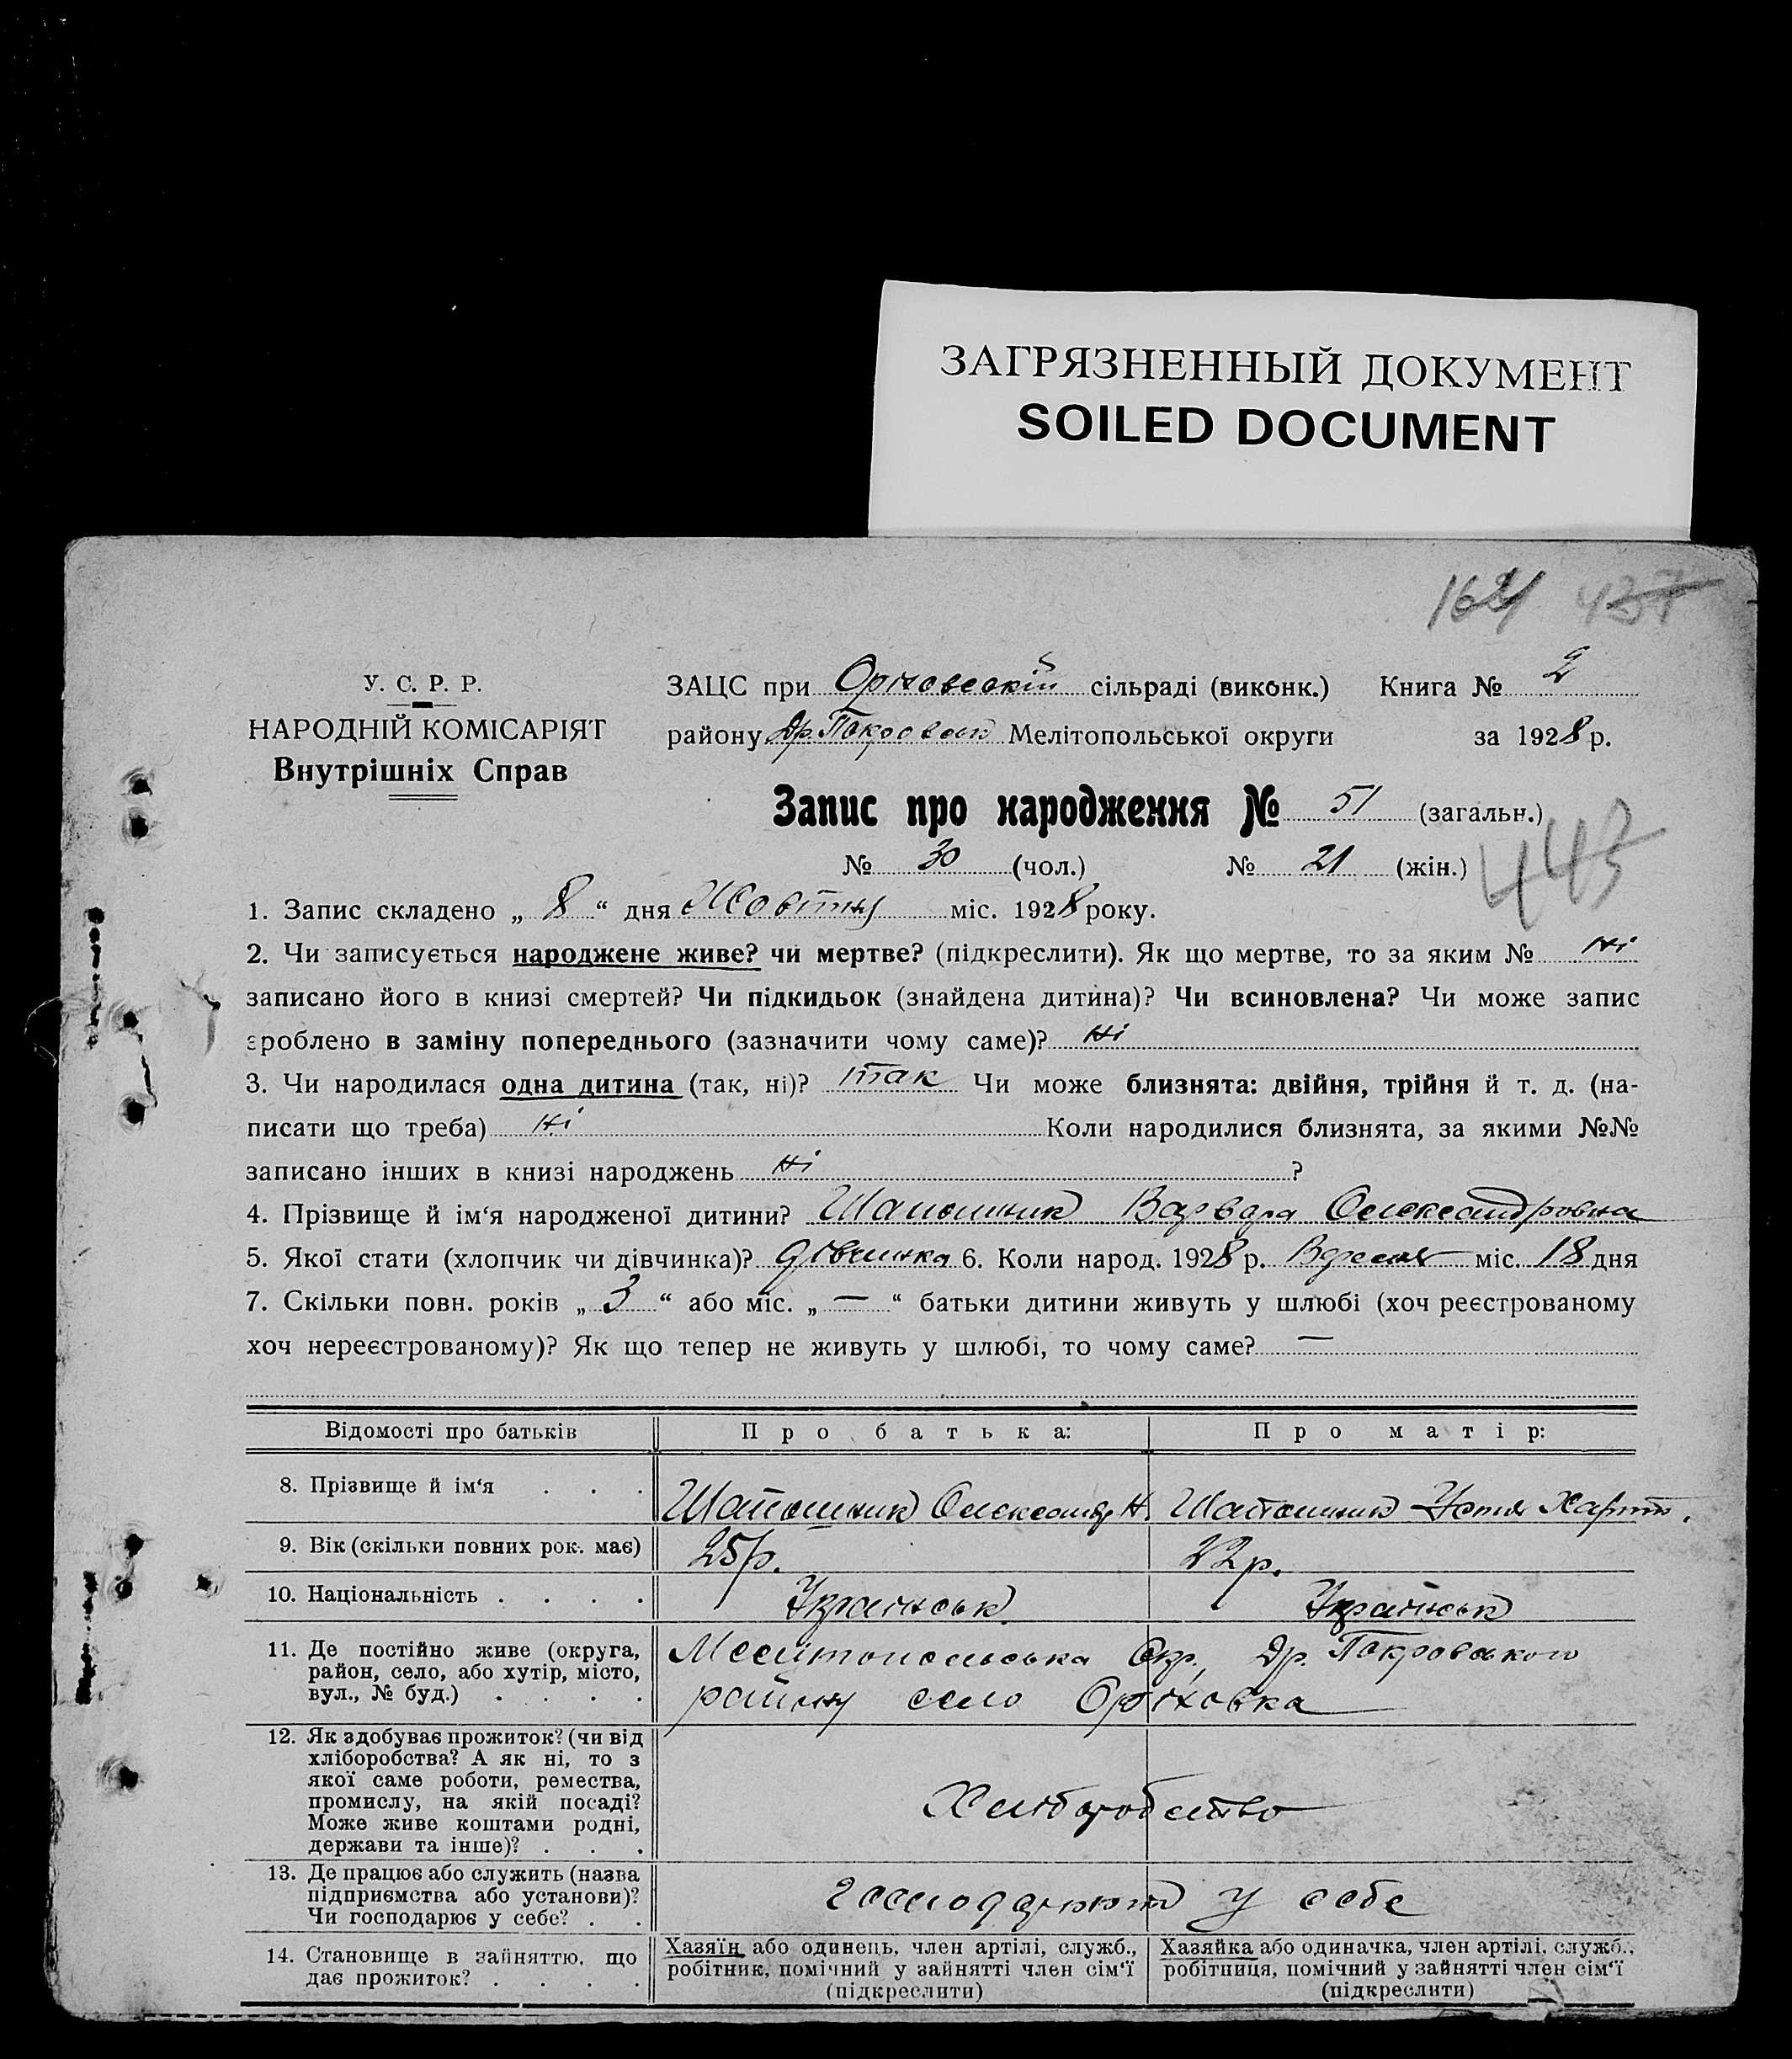 ЗАГРЯЗНЕННЫЙ ДОКУМЕНТ
SOILED DOCUMENT
У. С. Р. Р.
НАРОДНІЙ КОМІСАРІЯТ
Внутрішніх Справ
ЗАЦС при Оріховській сільраді (виконк.) Книга № 2
району Др. Покровськ Мелітопольської округи за 1928 р.
Запис про народження № 51 (загальн.)
№ 30 (чол.) № 21 (жін.)
443
1. Запис складено „ 8 “ дня Жовтня міс. 1928 року.
2. Чи записується народжене живе? чи мертве? (підкреслити). Як що мертве, то за яким № ні
записано його в книзі смертей? Чи підкидьок (знайдена дитина)? Чи всиновлена? Чи може запис
зроблено в заміну попереднього (зазначити чому саме)? ні
3. Чи народилася одна дитина (так, ні)? так Чи може близнята: двійня, трійня й т. д. (на-
писати що треба) ні Коли народилися близнята, за якими №№
записано інших в книзі народжень ні ?
4. Прізвище й ім‘я народженої дитини? Шапошник Варвара Олександровна
5. Якої стати (хлопчик чи дівчинка)? дівчинка 6. Коли народ. 1928 р. Вересня міс. 18 дня
7. Скільки повн. років „ 3 “ або міс. „ — “ батьки дитини живуть у шлюбі (хоч реєстрованому
хоч нереєстрованому)? Як що тепер не живуть у шлюбі, то чому саме? —
Відомості про батьків Про батька: Про матір:
8. Прізвище й ім‘я . . . Шапошник Олександр Н. Шапошник Устя Харит.
9. Вік (скільки повних рок. має) 25 р. 22 р.
10. Національність . . . . Українськ Українськ
11. Де постійно живе (округа,
район, село, або хутір, місто,
вул., № буд.) . . . .
Мелітопольська Окр., Др. Покровського
району село Оріховка
12. Як здобуває прожиток? (чи від
хліборобства? А як ні, то з
якої саме роботи, ремества,
промислу, на якій посаді?
Може живе коштами родні,
держави та інше)? . . .
Хліборобство
13. Де працює або служить (назва
підприємства або установи)?
Чи господарює у себе? . .
у себе
14. Становище в зайняттю, що
дає прожиток? . . . .
Хазяїн або одинець, член артілі, служб.,
робітник, помічний у зайнятті член сім‘ї
(підкреслити)
Хазяйка або одиначка, член артілі, служб.,
робітниця, помічний у зайнятті член сім‘ї
(підкреслити)